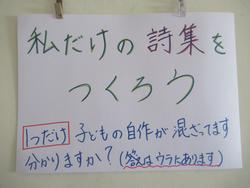 私だけの詩集を
つくろう
1つだけ 子どもの自作が混ざってます
分かりますか?(答えはウラにあります)